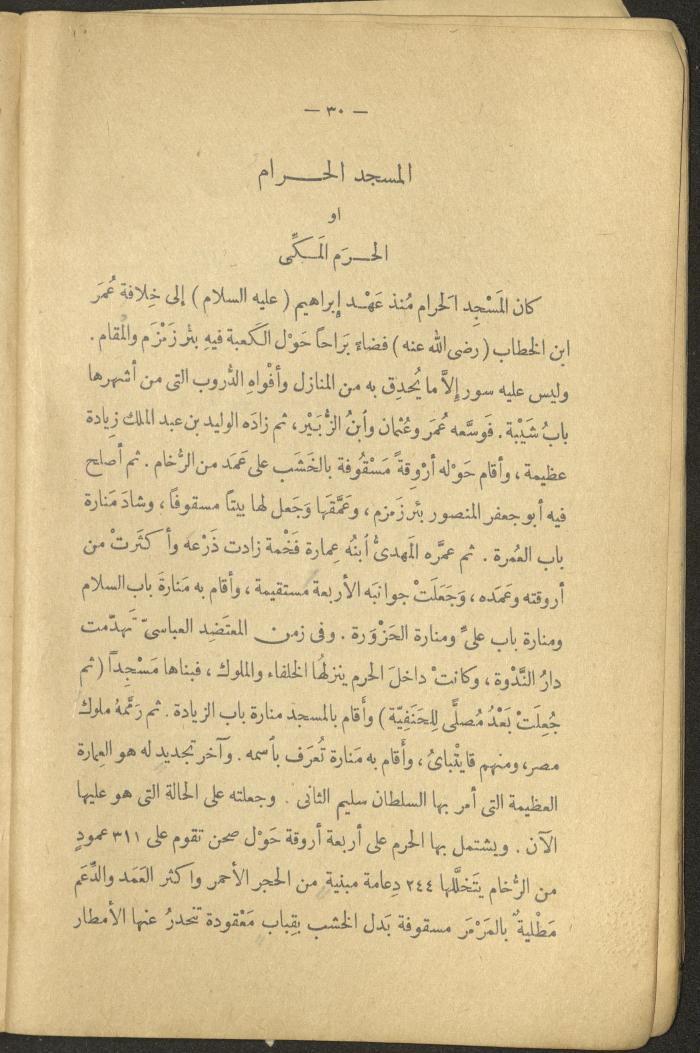 — ٣٠ —
المسجد الحـــرام
او
الحــرَم المَـكِّى
كان المَسْجِد الحَرام مُنذ عَهْـد إبراهيم ( عليه السلام ) إلى خِلافة عُمَر
ابن الخطاب ( رضى الله عنه ) فضاءً بَراحاً حَوْل الكَعبة فيهِ بئر زَمْزَم والمَقام .
وليس عليه سور إلاَّ ما يُحدِق به من المنازل وأفْواهِ الدُّروب التى من أشهرها
بابُ شَيْبَة . فَوسَّعه عُمَر وعُثمان وأبنُ الزُّبَيْر، ثم زادَه الوليد بن عبد الملك زيادة
عظيمة ، وأقام حَوْله أرْوِقةً مَسْقُوفة بالخَشَب على عَمَد من الرُّخام . ثم أصلح
فيه أبو جعفر المنصور بئر زَمزم ، وعَمَّقَها وَجَعل لها بيتاً مسقوفاً ، وشادَ مَنارة
باب العُمرة . ثم عمَّره المَهدىُّ أبنُه عِمارة فَخْمة زادت ذَرْعه وأكثَرتْ من
أروقته وعَمَده ، وَجَعَلَتْ جوانبَه الأربعة مستقيمة ، وأقام به مَنارةَ باب السلام
ومنارة باب علىّ ومنارة الحَزْوَرة . وفى زمن المعتَضِد العباسىّ تَهدّمت
دارُ النَّدْوة ، وكانتْ داخلَ الحرم ينزلهُا الخلفاء والملوك ، فبناها مَسْجِداً ( ثم
جُعِلَتْ بَعْدُ مُصلًّى لِلحَنَفِيّة ) وأقام بالمسجد منارة باب الزيادة . ثم رَمَّمهُ ملوك
مصر، ومنهم قايتْباىُ ، وأقام به مَنارة تُعرَف بأسمه . وآخر تجديد له هو العِمارة
العظيمة التى أمر بها السلطان سليم الثانى . وجعلته على الحالة التى هو عليها
الآن . ويشتمل بها الحرم على أربعة أروقة حَوْل صحن تقوم على ٣١١ عمودٍ
من الرُّخام يتَخلَّلها ٢٤٤ دِعامة مبنية من الحجر الأحمر واكثر العَمَد والدِّعَم
مَطْليةٌ بالمَرْمَر مسقوفة بَدل الخشب بِقِباب مَعْقودة تنحدرُ عنها الأمطار